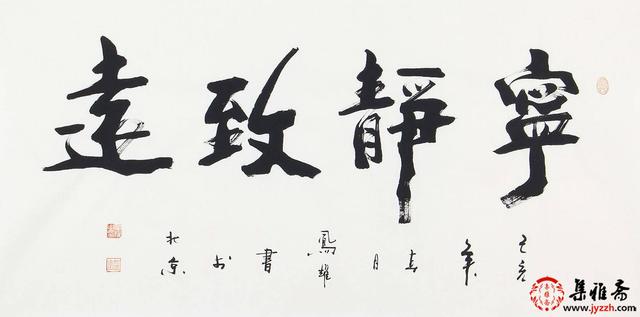 寧靜致遠
年吉月鳳耀書於北京
集雅斋
www.jyzzh.com